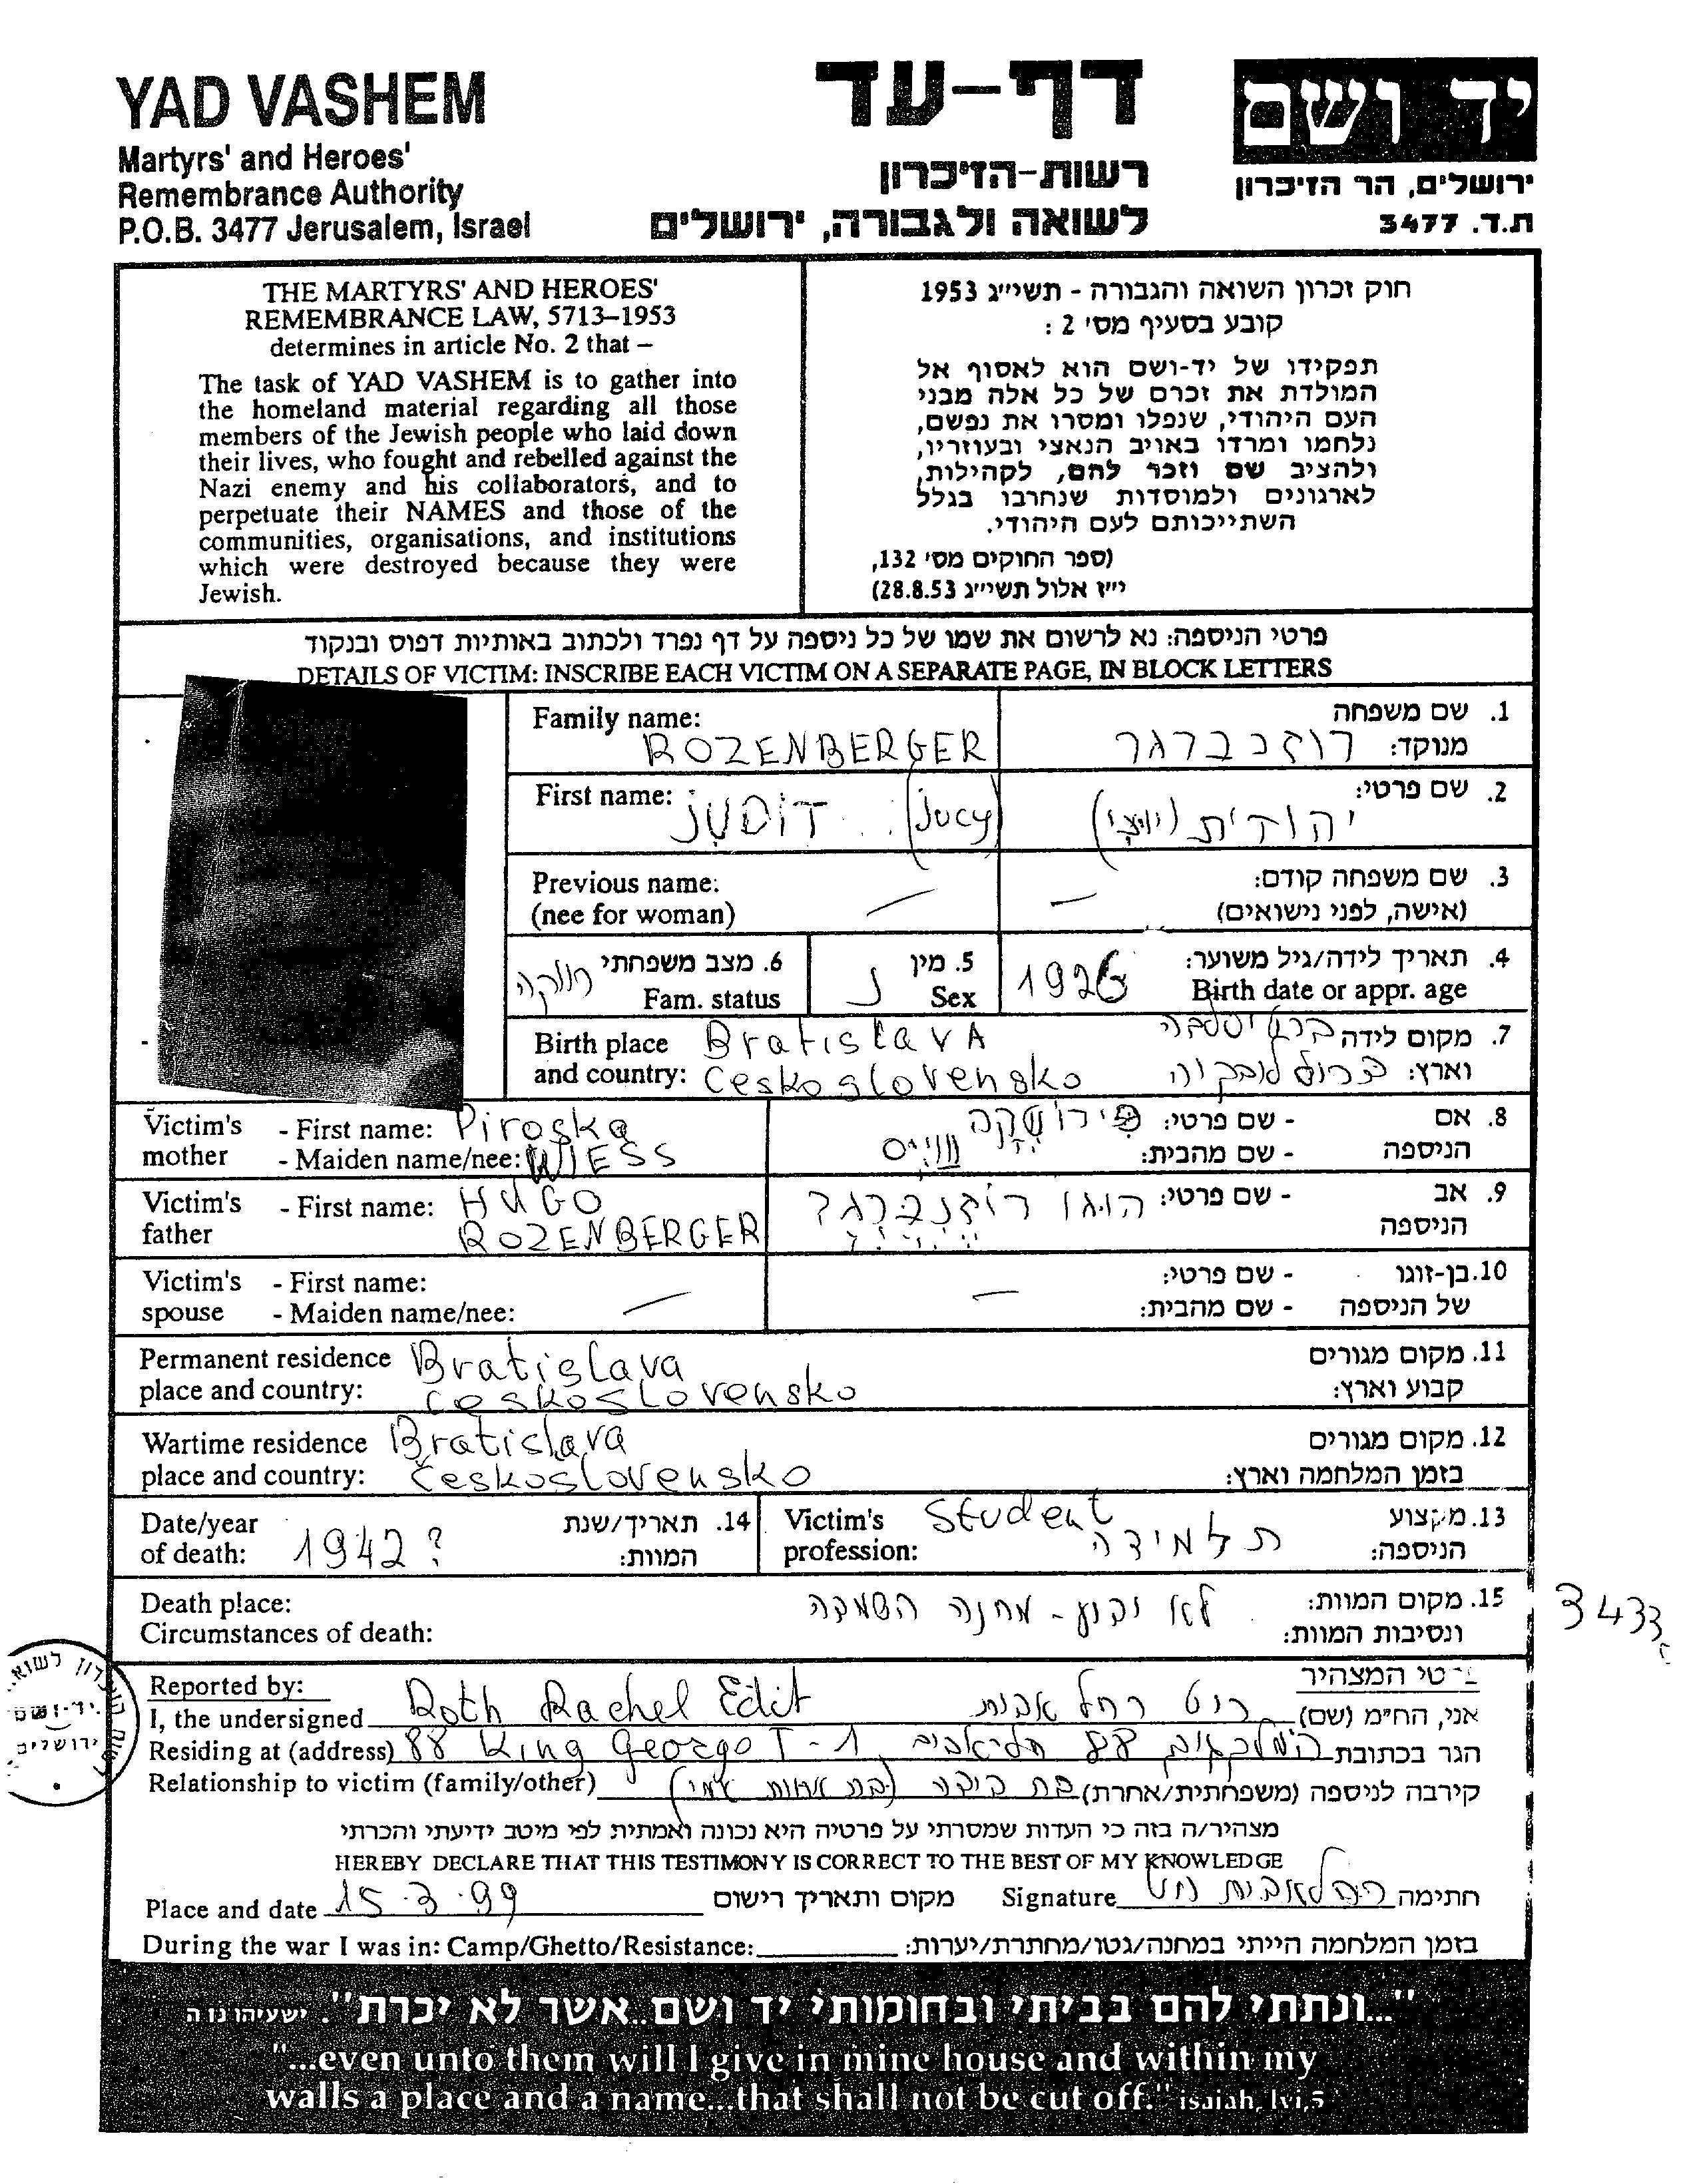 YAD VASHEM
Martyrs' and Heroes'
Remembrance Authority
P.O.B. 3477 Jerusalem, Israel
דף-עד
רשות-הזיכרון
לשואה ולגבורה, ירושלים
יד ושם
ירושלים, הר הזיכרון
ת.ד. 3477
THE MARTYRS' AND HEROES'
REMEMBRANCE LAW, 5713–1953
determines in article No. 2 that –
The task of YAD VASHEM is to gather into
the homeland material regarding all those
members of the Jewish people who laid down
their lives, who fought and rebelled against the
Nazi enemy and his collaborators, and to
perpetuate their NAMES and those of the
communities, organisations, and institutions
which were destroyed because they were
Jewish.
חוק זכרון השואה והגבורה - תשי״ג 1953
קובע בסעיף מס׳ 2 :
תפקידו של יד-ושם הוא לאסוף אל
המולדת את זכרם של כל אלה מבני
העם היהודי, שנפלו ומסרו את נפשם,
נלחמו ומרדו באויב הנאצי ובעוזריו,
ולהציב שם וזכר להם, לקהילות,
לארגונים ולמוסדות שנחרבו בגלל
השתייכותם לעם היהודי.
(ספר החוקים מס׳ 132,
י״ז אלול תשי״ג 28.8.53)
פרטי הניספה: נא לרשום את שמו של כל ניספה על דף נפרד ולכתוב באותיות דפוס ובנקוד
DETAILS OF VICTIM: INSCRIBE EACH VICTIM ON A SEPARATE PAGE, IN BLOCK LETTERS
Family name:
ROZENBERGER
1. שם משפחה
מנוקד: רוזנברגר
First name: JUDIT (Jucy)
2. שם פרטי:
יהודית (יוצי)
Previous name:
(nee for woman) —
3. שם משפחה קודם:
(אישה, לפני נישואים) —
6. מצב משפחתי רווקה
Fam. status
5. מין
Sex נ
4. תאריך לידה/גיל משוער:
Birth date or appr. age 1926
Birth place Bratislava
and country: Ceskoslovensko
7. מקום לידה ברטיסלבה
וארץ:
Victim's - First name: Piroska
mother - Maiden name/nee: WIESS
8. אם - שם פרטי: פירושקה
הניספה - שם מהבית: ווייס
Victim's - First name: HUGO
father ROZENBERGER
9. אב - שם פרטי: הוגו רוזנברגר
הניספה
Victim's - First name:
spouse - Maiden name/nee: —
10. בן-זוגו - שם פרטי:
של הניספה - שם מהבית: —
Permanent residence Bratislava
place and country: Ceskoslovensko
11. מקום מגורים
קבוע וארץ:
Wartime residence Bratislava
place and country: Československo
12. מקום מגורים
בזמן המלחמה וארץ:
Date/year
of death: 1942?
14. תאריך/שנת
המוות:
Victim's Student
profession: תלמידה
13. מקצוע
הניספה:
Death place:
Circumstances of death:
15. מקום המוות: לא ידוע - מחנה השמדה
ונסיבות המוות:
3433
Reported by:
I, the undersigned Roth Rachel Edit
המצהיר
אני, הח״מ (שם) רוט רחל אדית
Residing at (address) 88 King George T-1
הגר בכתובת 88 תל אביב
Relationship to victim (family/other)
קירבה לניספה (משפחתית/אחרת) בת דודה (בת אחות אמי)
מצהיר/ה בזה כי העדות שמסרתי על פרטיה היא נכונה ואמתית לפי מיטב ידיעתי והכרתי
HEREBY DECLARE THAT THIS TESTIMONY IS CORRECT TO THE BEST OF MY KNOWLEDGE
Place and date 15.3.99 מקום ותאריך רישום
Signature חתימה
During the war I was in: Camp/Ghetto/Resistance: בזמן המלחמה הייתי במחנה/גטו/מחתרת/יערות:
"...ונתתי להם בביתי ובחומותי יד ושם..אשר לא יכרת". ישעיהו נו ה
"...even unto them will I give in mine house and within my
walls a place and a name...that shall not be cut off." isaiah, lvi,5